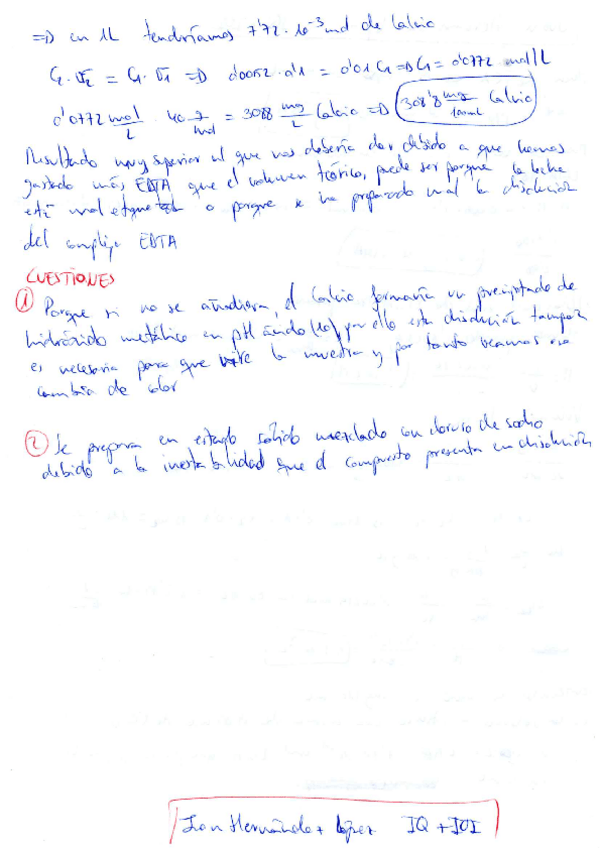 => en 1L tendríamos 7'72·10⁻³ mol de Calcio
C₂·V₂ = C₁·V₁ => 0'1 = 0'01 C₁ => C₁ = 0'0772 mol/L
0'0772 mol/L · 40 g/mol = 3088 mg/L Calcio => 308'8 mg/100ml Calcio
Resultado muy superior al que nos debería dar debido a que hemos
gastado más EDTA que el volumen teórico, puede ser porque la leche
esté mal etiquetada o porque se ha preparado mal la disolución
del complejo EDTA
CUESTIONES
① Porque si no se añadiera, el Calcio formaría un precipitado de
hidróxido metálico en pH (10), por ello esta disolución tampón
es necesaria para que vire la muestra y por tanto veamos ese
cambio de color
② Se prepara en estado sólido mezclado con cloruro de sodio
debido a la inestabilidad que el compuesto presenta en disolución
Hernández López IQ +